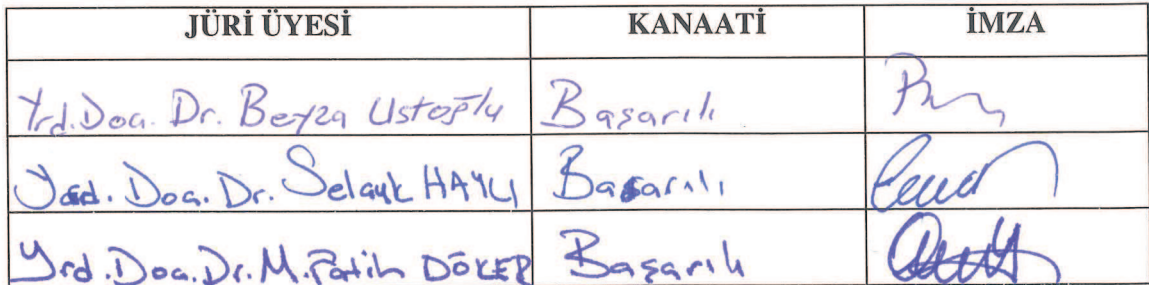 JÜRİ ÜYESİ KANAATİ İMZA
Yrd.Doç. Dr. Beyza Ustaoğlu Başarılı
Yrd. Doç. Dr. Selçuk HAYLI Başarılı
Yrd. Doç. Dr. M. Fatih DÖKER Başarılı